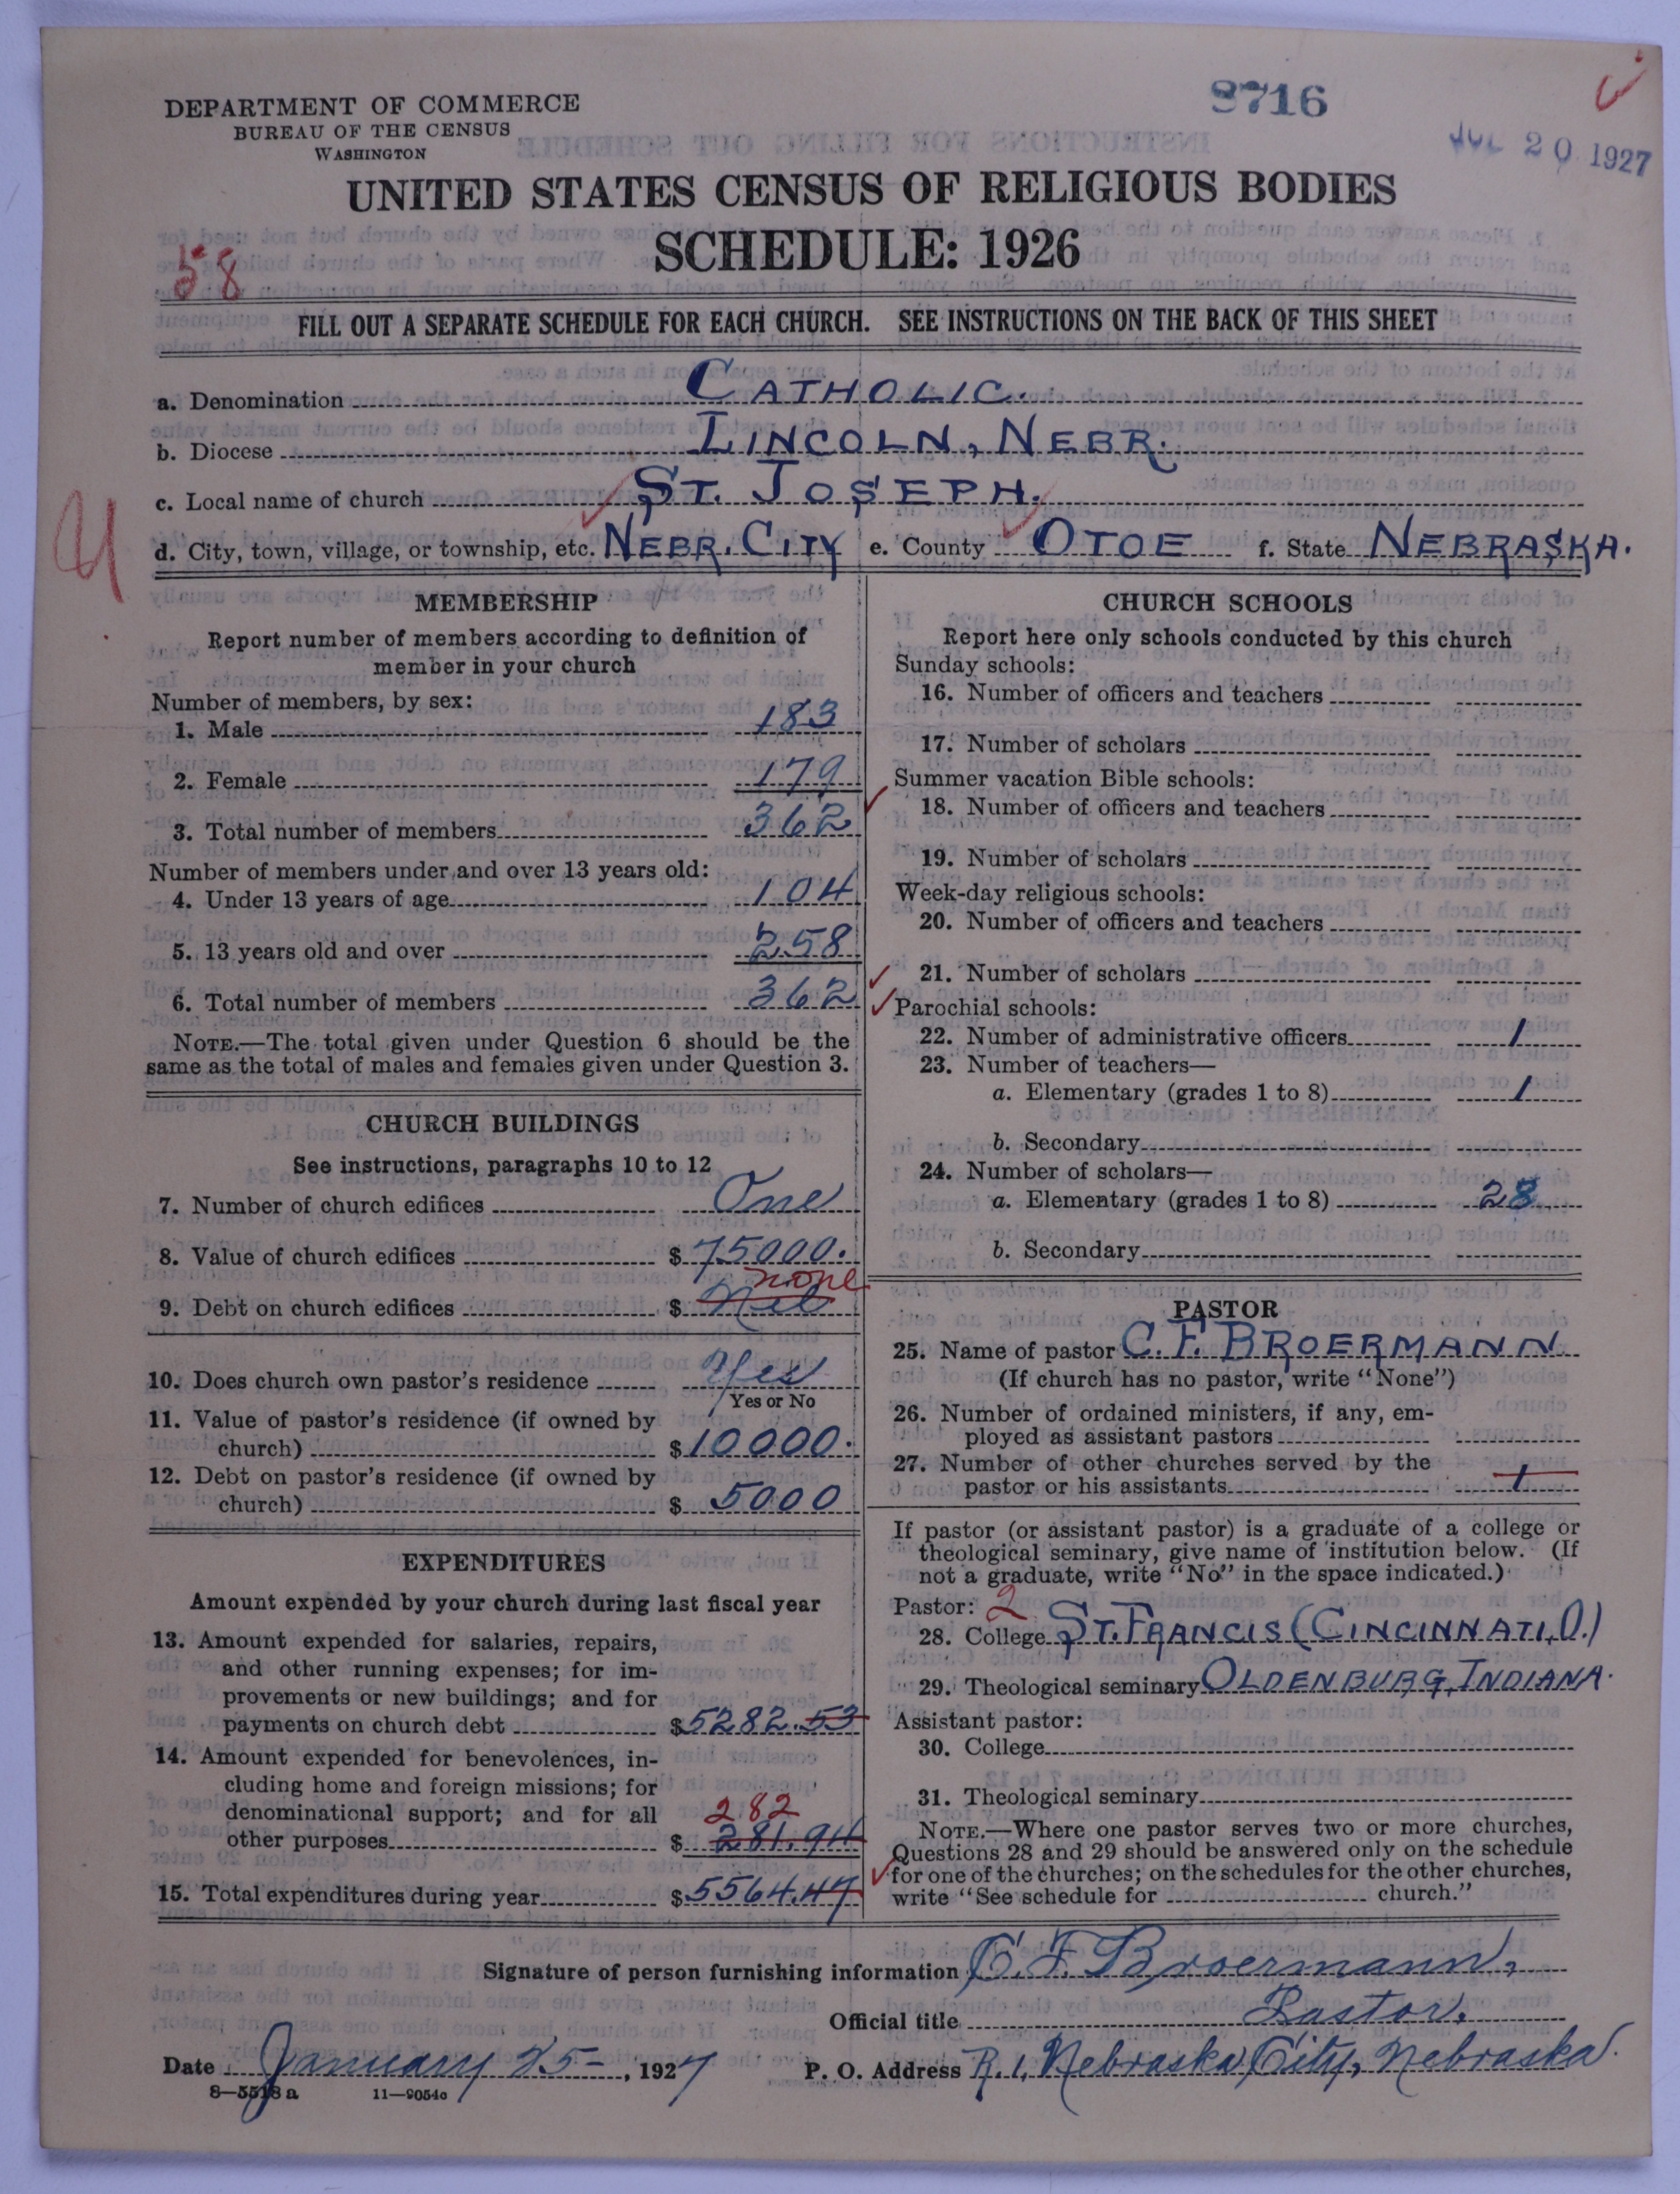 DEPARTMENT OF COMMERCE
BUREAU OF THE CENSUS
WASHINGTON
8716
JUL 20 1927
UNITED STATES CENSUS OF RELIGIOUS BODIES
SCHEDULE: 1926
58
FILL OUT A SEPARATE SCHEDULE FOR EACH CHURCH. SEE INSTRUCTIONS ON THE BACK OF THIS SHEET
a. Denomination CATHOLIC.
b. Diocese LINCOLN, NEBR.
c. Local name of church ST. JOSEPH.
d. City, town, village, or township, etc. NEBR. CITY e. County OTOE f. State NEBRASKA.
MEMBERSHIP
Report number of members according to definition of
member in your church
Number of members, by sex:
1. Male 183
2. Female 179
3. Total number of members 362
Number of members under and over 13 years old:
4. Under 13 years of age 104
5. 13 years old and over 258
6. Total number of members 362
NOTE.—The total given under Question 6 should be the
same as the total of males and females given under Question 3.
CHURCH BUILDINGS
See instructions, paragraphs 10 to 12
7. Number of church edifices One
8. Value of church edifices $ 75000.
none
9. Debt on church edifices $ Nil
10. Does church own pastor's residence Yes
Yes or No
11. Value of pastor's residence (if owned by
church) $ 10000.
12. Debt on pastor's residence (if owned by
church) $ 5000
EXPENDITURES
Amount expended by your church during last fiscal year
13. Amount expended for salaries, repairs,
and other running expenses; for im-
provements or new buildings; and for
payments on church debt $ 5282.53
14. Amount expended for benevolences, in-
cluding home and foreign missions; for
denominational support; and for all 282
other purposes $ 281.94
15. Total expenditures during year $ 5564.47
CHURCH SCHOOLS
Report here only schools conducted by this church
Sunday schools:
16. Number of officers and teachers
17. Number of scholars
Summer vacation Bible schools:
18. Number of officers and teachers
19. Number of scholars
Week-day religious schools:
20. Number of officers and teachers
21. Number of scholars
Parochial schools:
22. Number of administrative officers 1
23. Number of teachers—
a. Elementary (grades 1 to 8) 1
b. Secondary
24. Number of scholars—
a. Elementary (grades 1 to 8) 28
b. Secondary
PASTOR
25. Name of pastor C. F. BROERMANN
(If church has no pastor, write "None")
26. Number of ordained ministers, if any, em-
ployed as assistant pastors
27. Number of other churches served by the
pastor or his assistants 1
If pastor (or assistant pastor) is a graduate of a college or
theological seminary, give name of institution below. (If
not a graduate, write "No" in the space indicated.)
Pastor: 2
28. College ST. FRANCIS (CINCINNATI, O.)
29. Theological seminary OLDENBURG, INDIANA.
Assistant pastor:
30. College
31. Theological seminary
NOTE.—Where one pastor serves two or more churches,
Questions 28 and 29 should be answered only on the schedule
for one of the churches; on the schedules for the other churches,
write "See schedule for church."
Signature of person furnishing information C. F. Broermann,
Official title Pastor.
Date January 25- , 1927 P. O. Address R. 1, Nebraska City, Nebraska.
8—5518 a 11—9054c